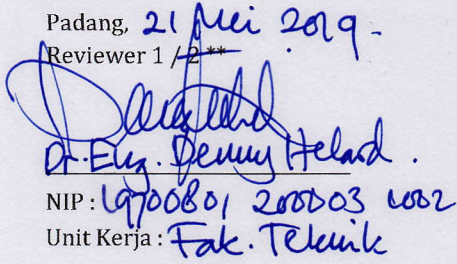 Padang, 21 Mei 2019.
Reviewer 1 / 2 **
Dr. Eng. Denny Helard.
NIP : 19700801 200003 1002
Unit Kerja : Fak. Teknik